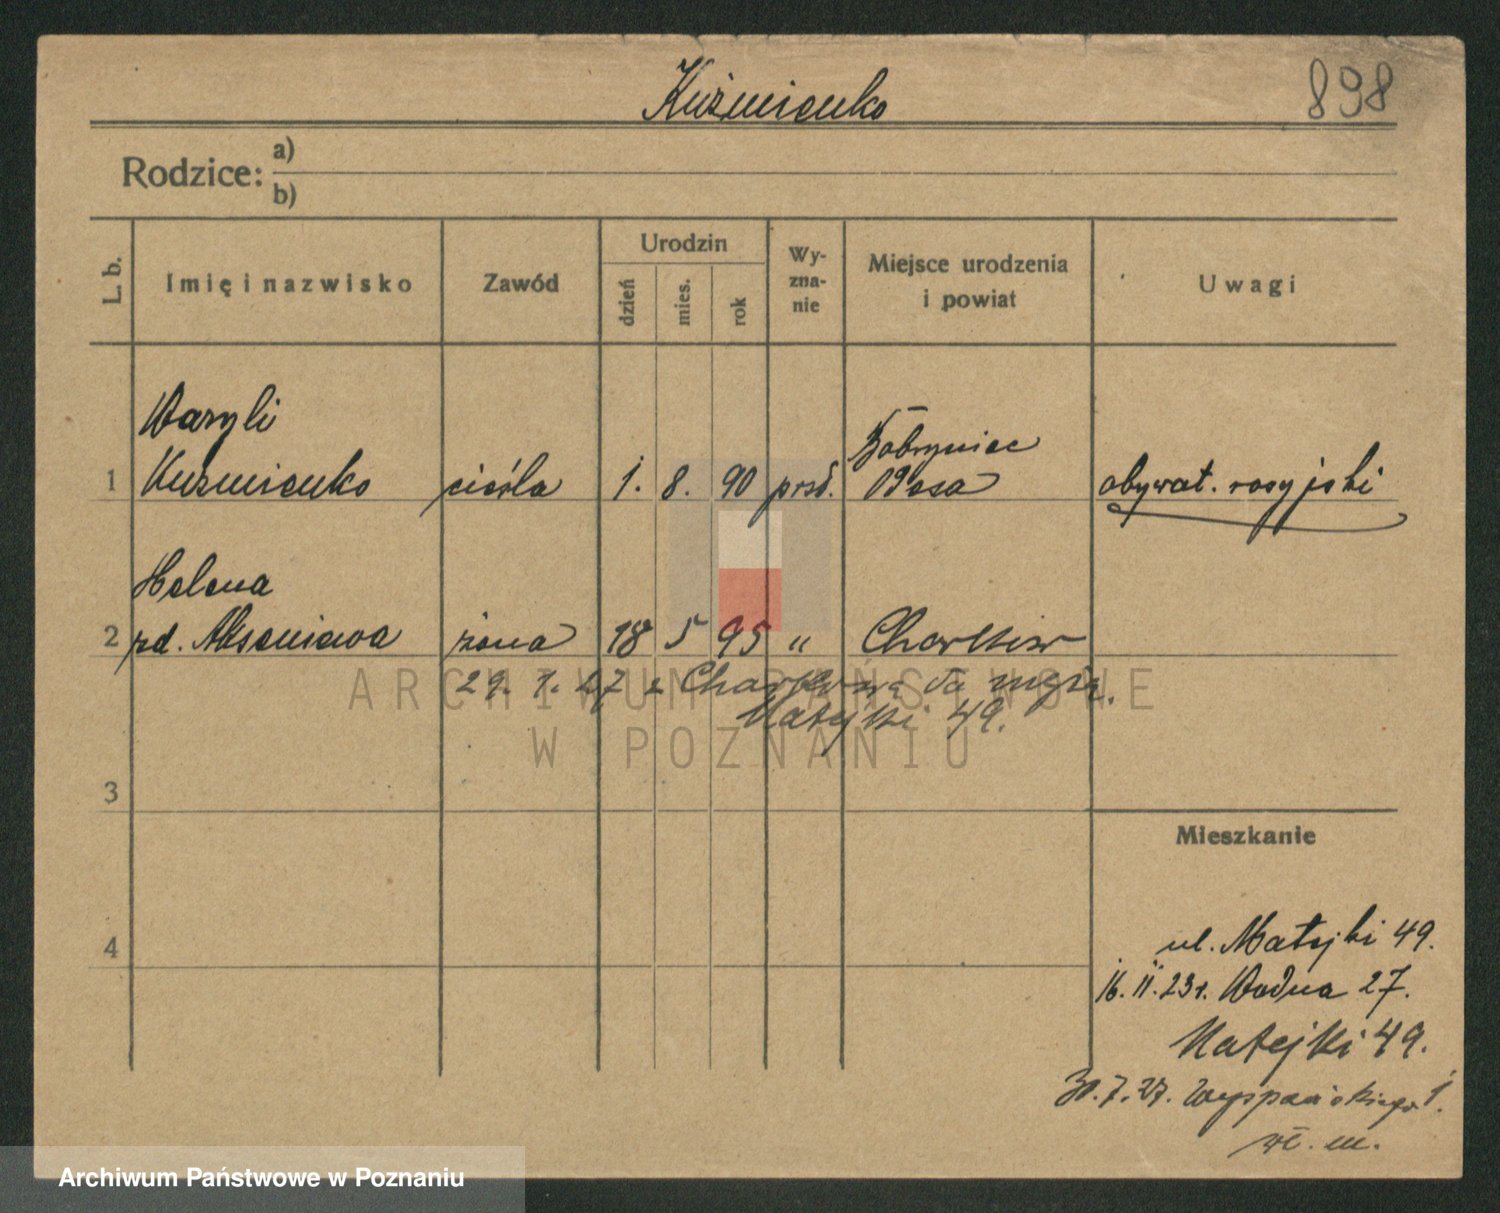 Kuźmienko
898
Rodzice: a)
b)
L. b.
Imię i nazwisko
Zawód
Urodzin
dzień
mies.
rok
Wy-
zna-
nie
Miejsce urodzenia
i powiat
Uwagi
Wasyli
1 Kuźmienko cieśla 1. 8. 90 prsł. Odesa obywat. rosyjski
Helena
2 zd. Akseniewa żona 18 5 95 " Charków
29. 1. 27 z Charkowa do męża.
Matejki 49.
3
4
Mieszkanie
ul. Matejki 49.
16. II. 23 r. Wodna 27.
Matejki 49.
30. 7. 27. Wyspiańskiego 1.
wł. m.
ARCHIWUM PAŃSTWOWE
W POZNANIU
Archiwum Państwowe w Poznaniu